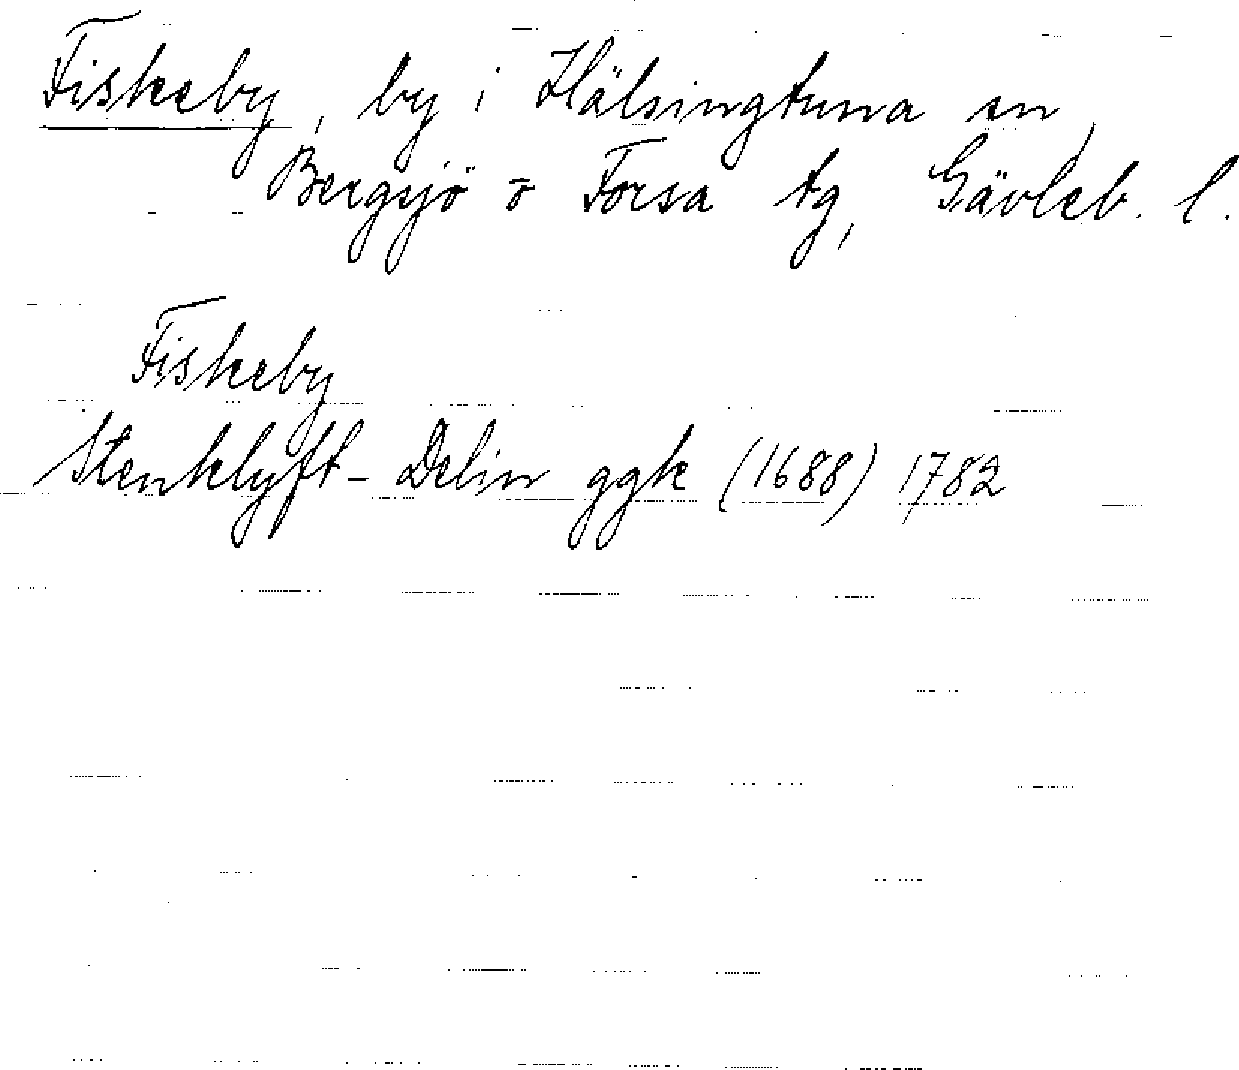 Fiskeby, by i Hälsingtuna sn,
Bergsjö o Forsa tg, Gävleb. l.
Fiskeby
Stenklyft-Delin ggk (1688) 1782